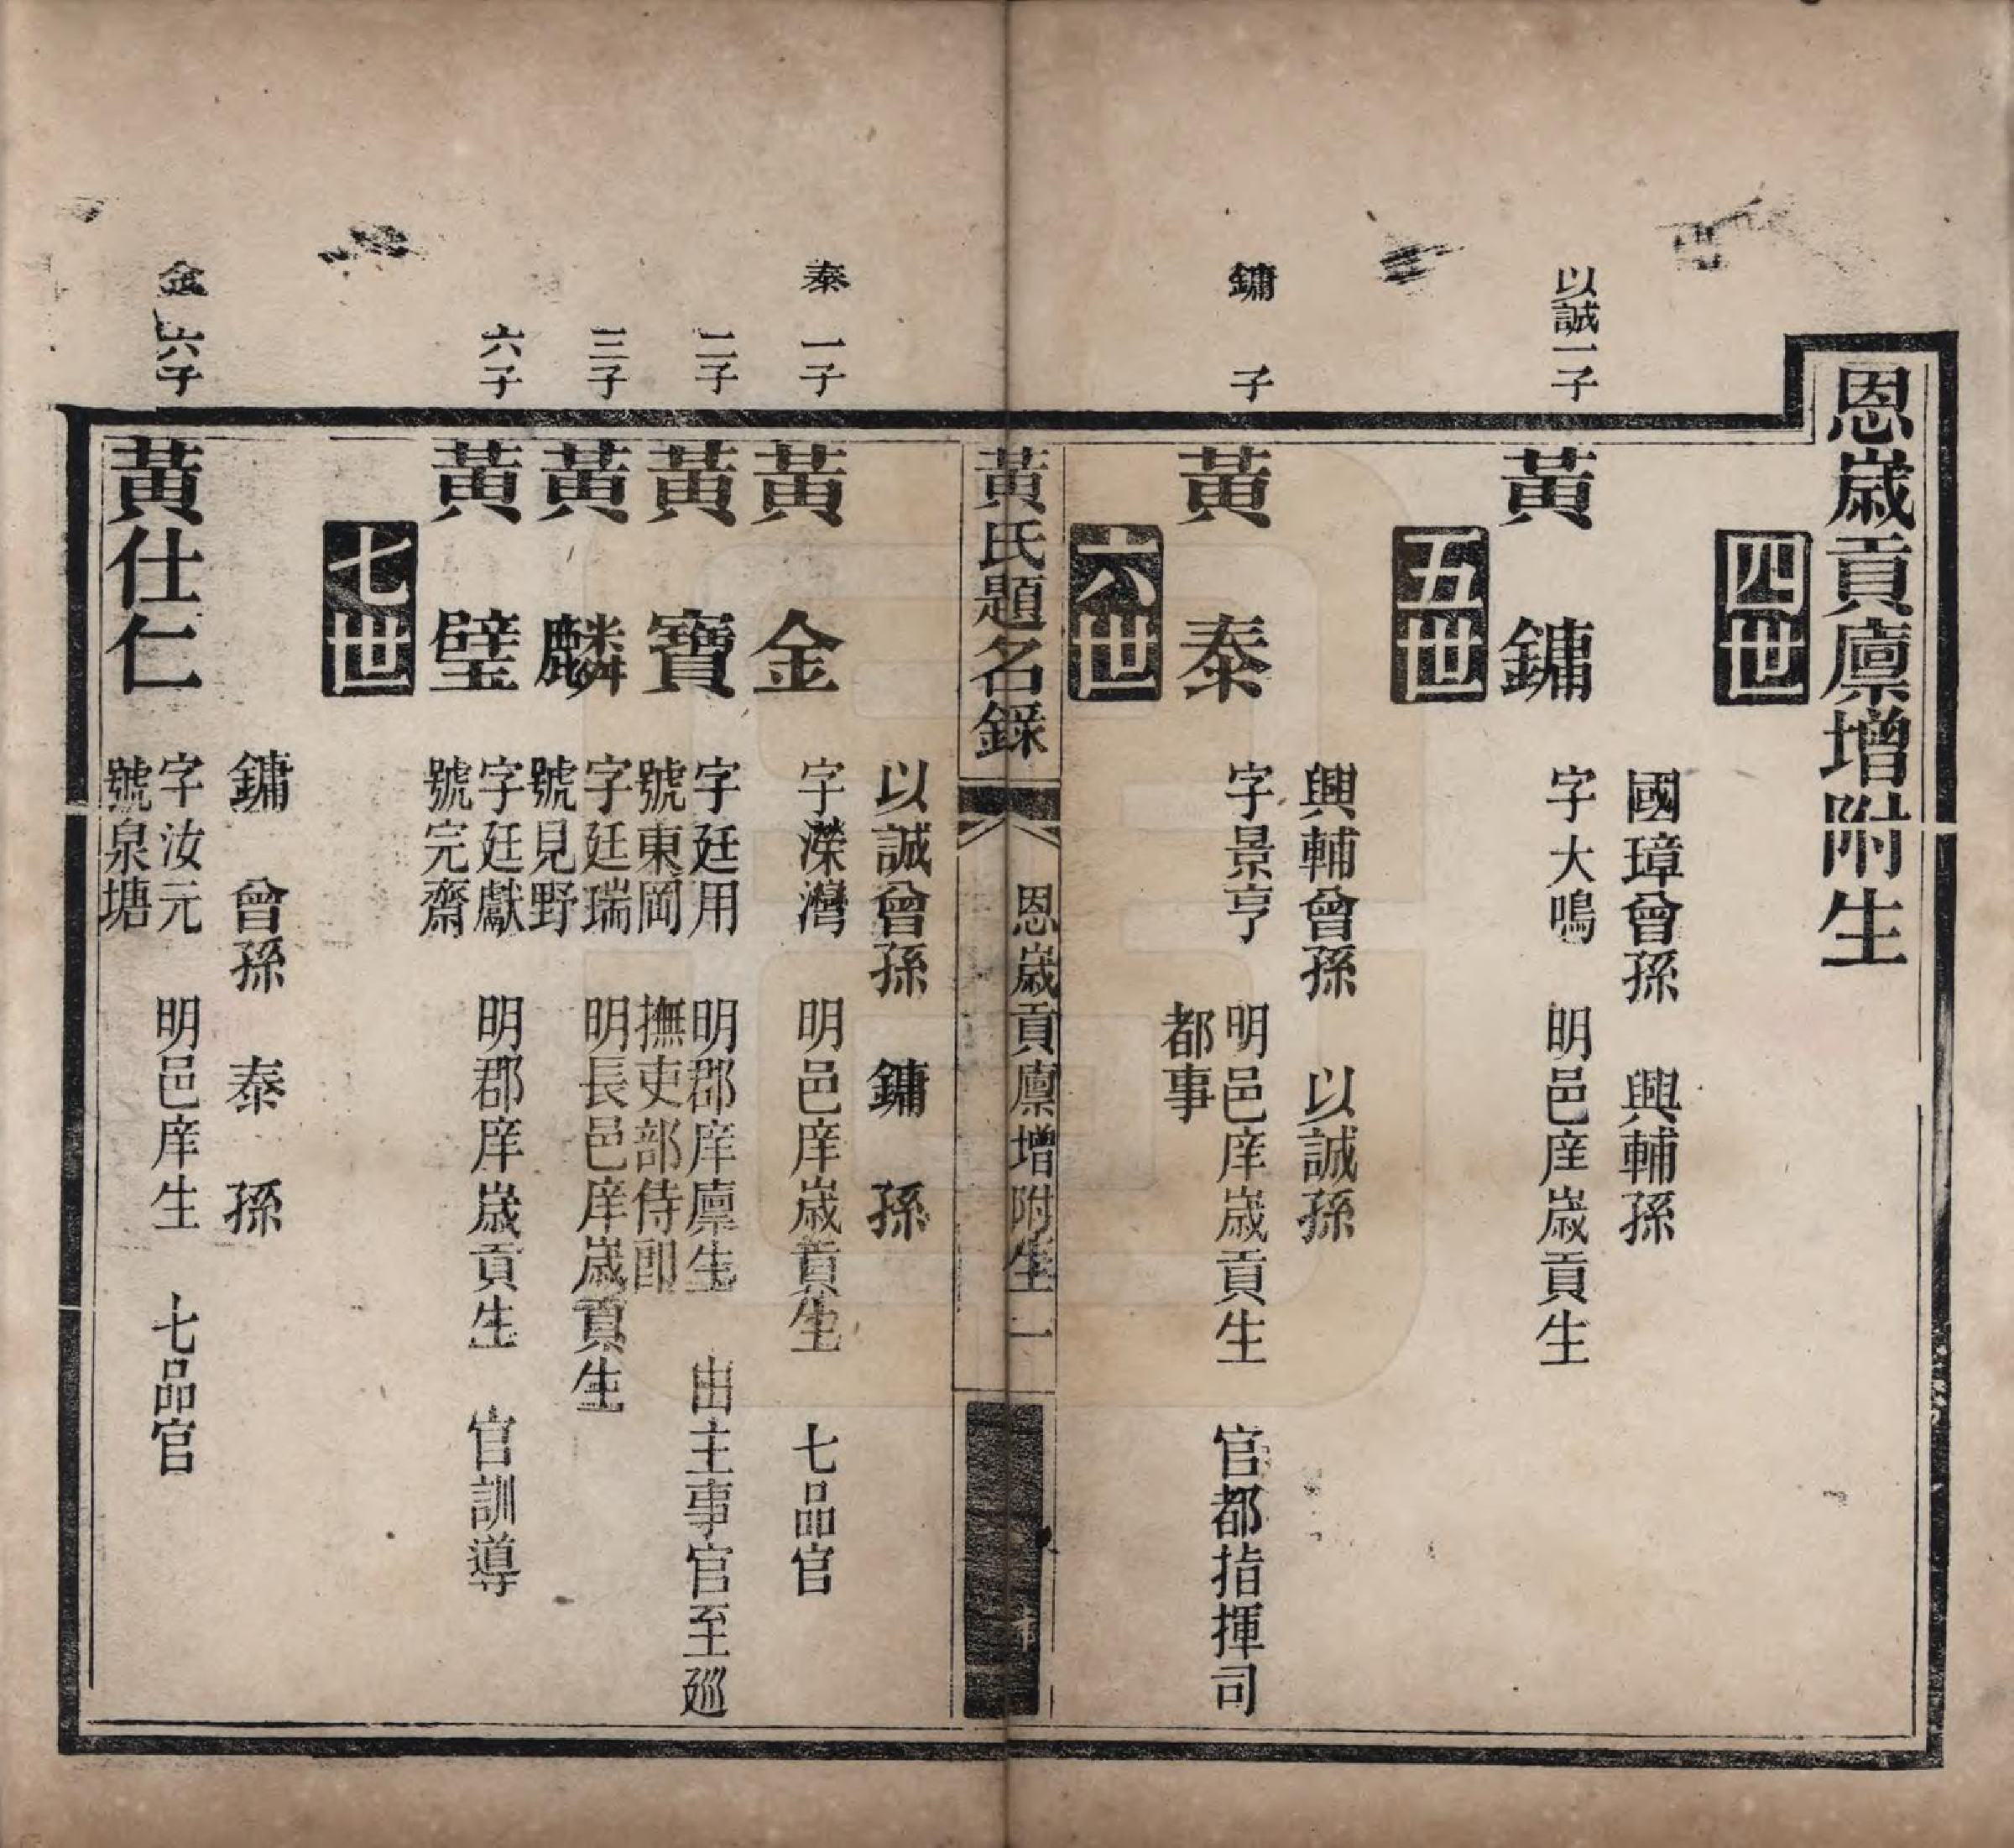 恩歲貢廩增附生
四世
國璋曾孫　興輔孫
以誠一子
黃　鏞　字大鳴　明邑庠歲貢生
五世
興輔曾孫　以誠孫
鏞　子
黃　泰　字景亨　明邑庠歲貢生　官都指揮司
都事
六世
黃氏題名錄　恩歲貢廩增附生　一
以誠曾孫　鏞　孫
泰　一子
黃　金　字濚灣　明邑庠歲貢生　七品官
二子
黃　寶　字廷用　明郡庠廩生　由主事官至廵
號東岡　撫吏部侍郎
三子
黃　麟　字廷瑞　明長邑庠歲貢生
號見野
六子
黃　璧　字廷獻　明郡庠歲貢生　官訓導
號完齋
七世
鏞　曾孫　泰　孫
金　六子
黃仕仁　字汝元　明邑庠生　七品官
號泉塘